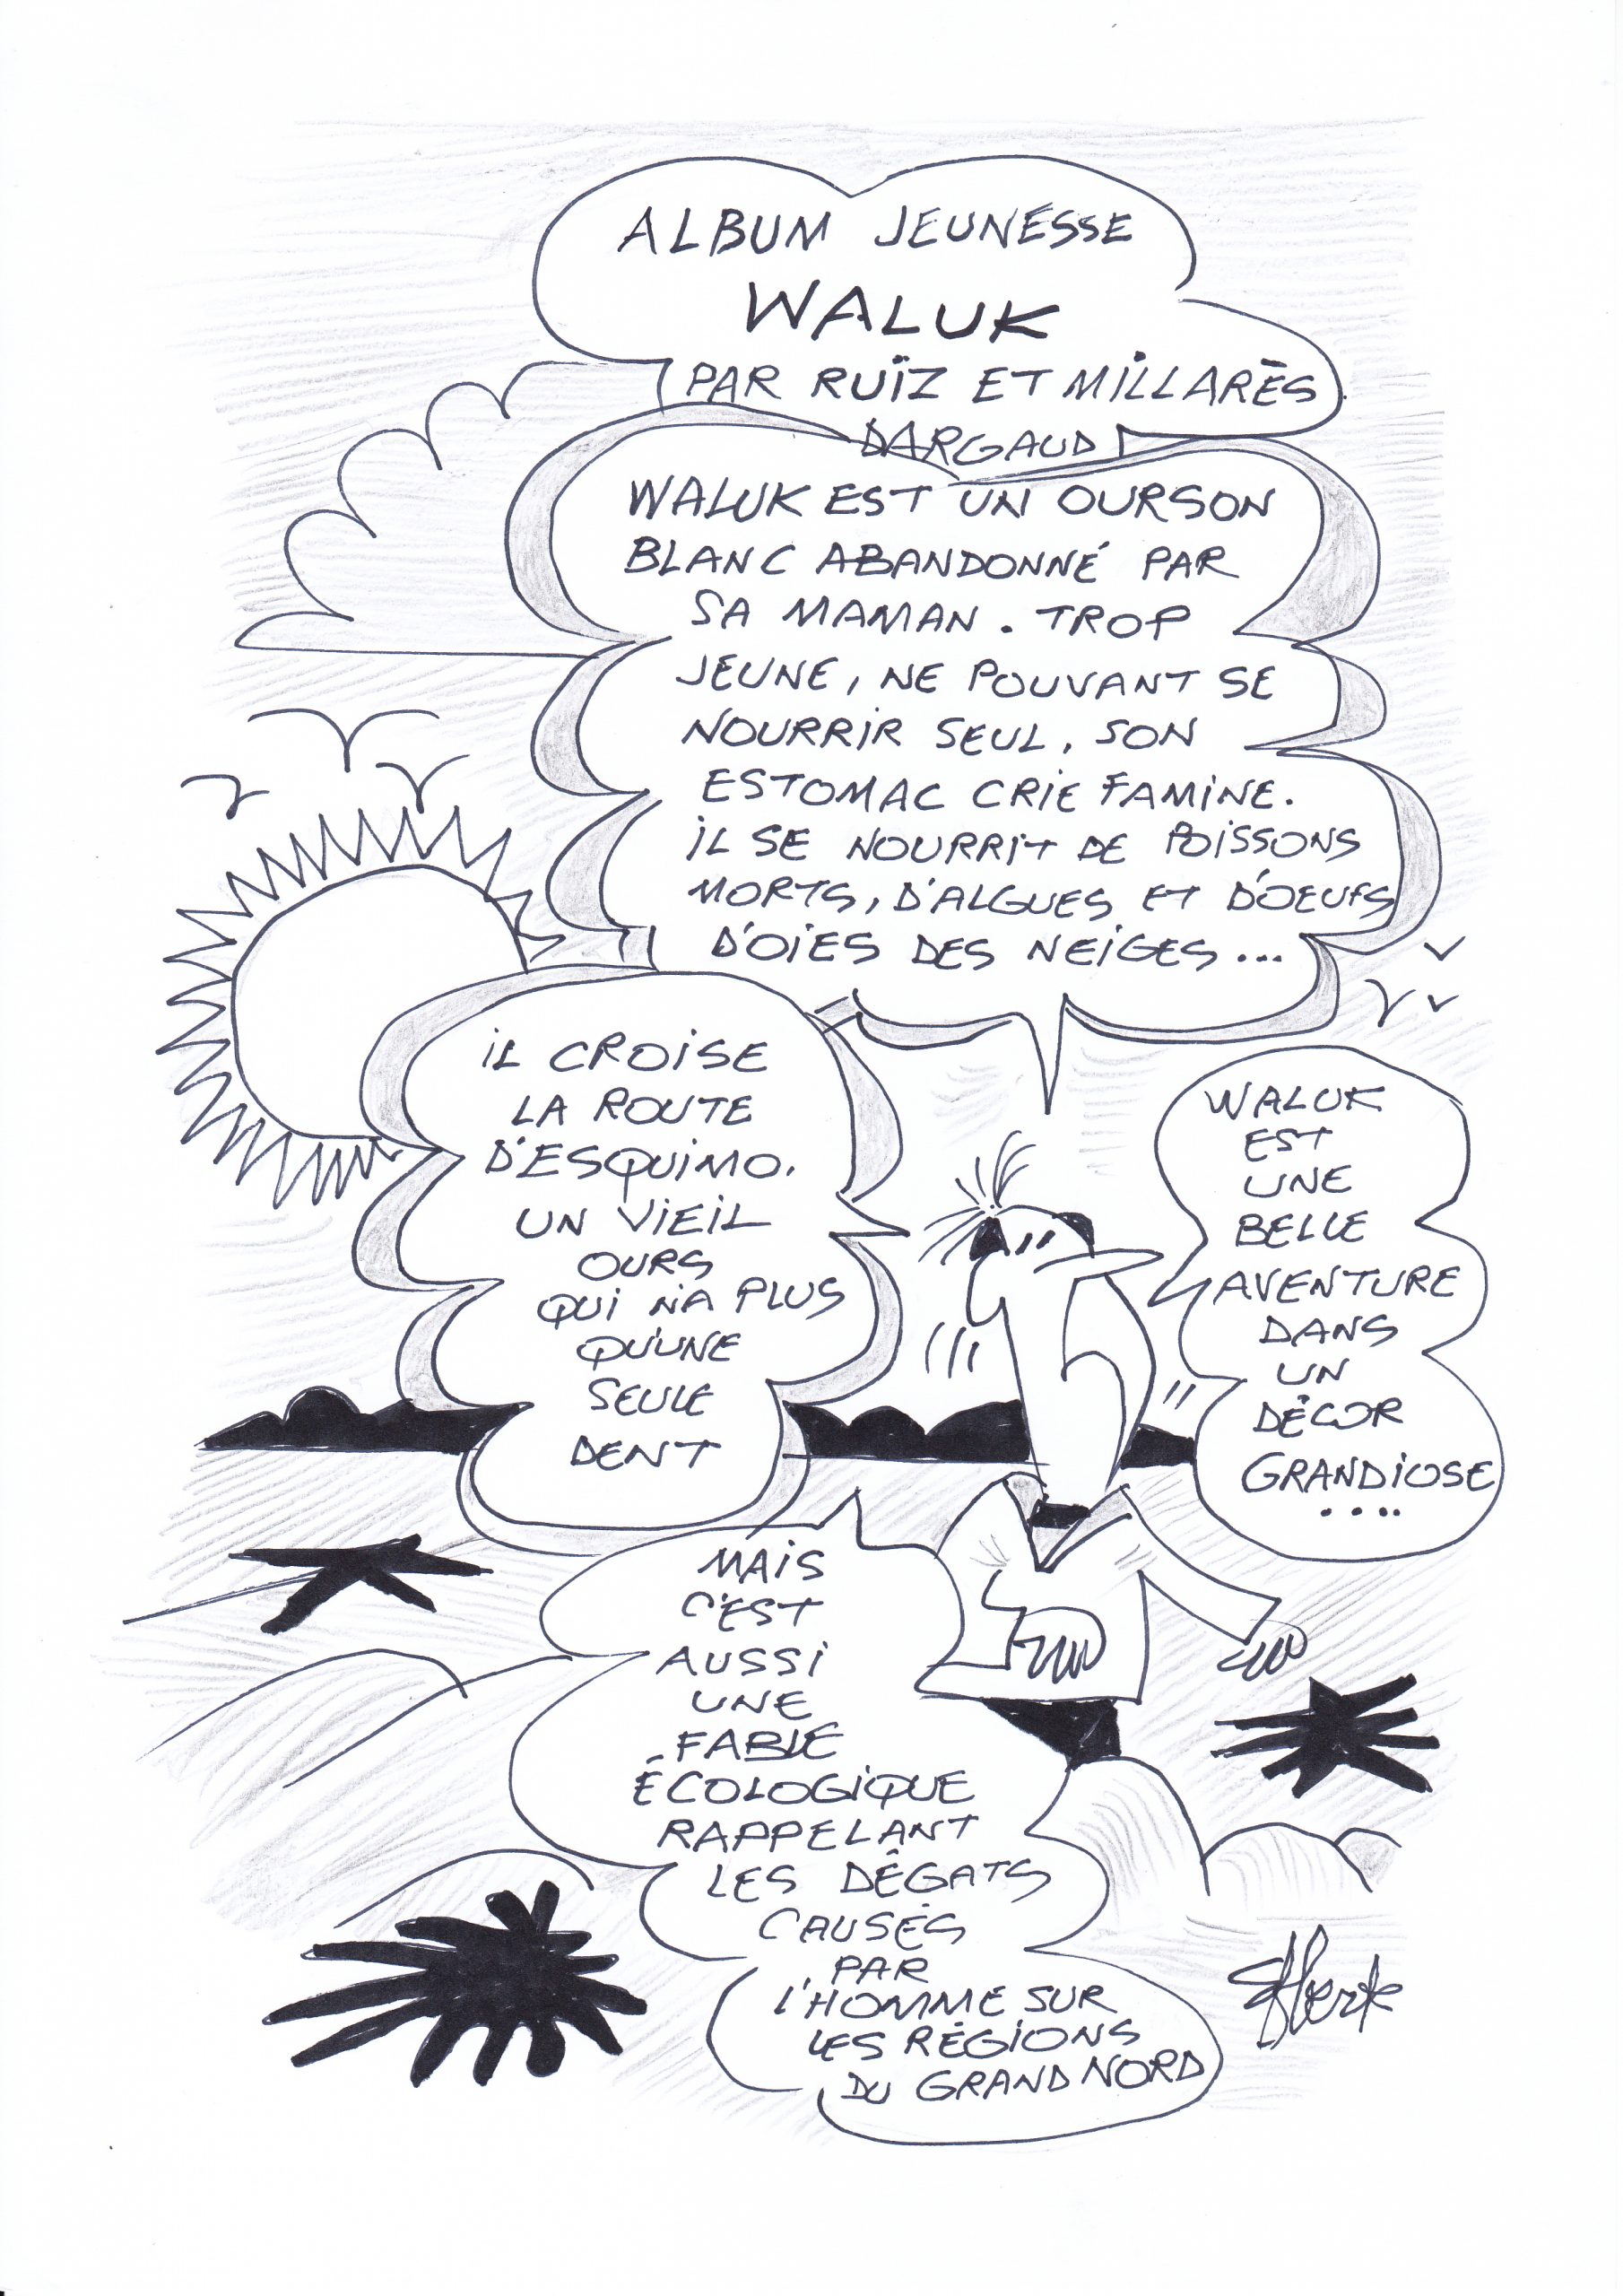 ALBUM JEUNESSE
WALUK
PAR RUÏZ ET MILLARÈS
DARGAUD
WALUK EST UN OURSON
BLANC ABANDONNÉ PAR
SA MAMAN. TROP
JEUNE, NE POUVANT SE
NOURRIR SEUL, SON
ESTOMAC CRIE FAMINE.
IL SE NOURRIT DE POISSONS
MORTS, D'ALGUES ET D'OEUFS
D'OIES DES NEIGES...
IL CROISE
LA ROUTE
D'ESQUIMO.
UN VIEIL
OURS
QUI N'A PLUS
QU'UNE
SEULE
DENT
WALUK
EST
UNE
BELLE
AVENTURE
DANS
UN
DÉCOR
GRANDIOSE
....
MAIS
C'EST
AUSSI
UNE
FABLE
ÉCOLOGIQUE
RAPPELANT
LES DÉGATS
CAUSÉS
PAR
L'HOMME SUR
LES RÉGIONS
DU GRAND NORD